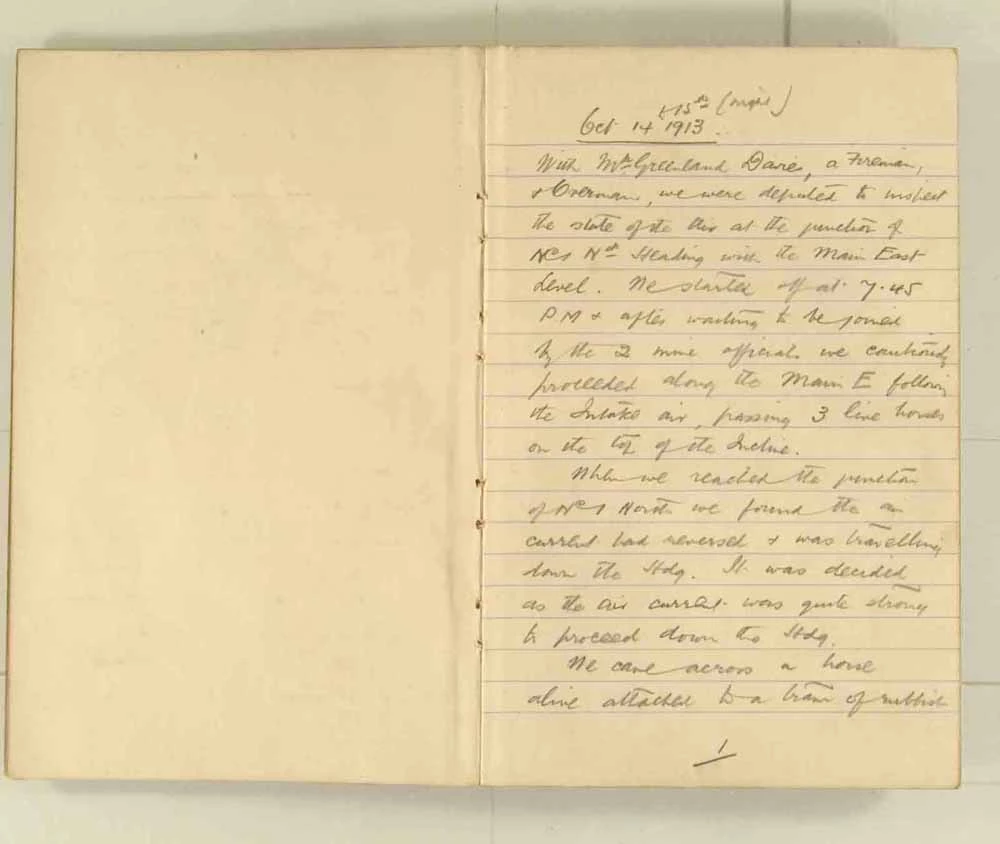 & 15th (night)
Oct 14 1913.
With Mr Greenland Davies, a Fireman,
& Overman, we were deputed to inspect
the state of the Air at the junction of
No 1 Nth Heading with the Main East
Level. We started off at 7.45
P.M & after waiting to be joined
by the 2 mine officials we cautiously
proceeded along the Main E following
the Intake air, passing 3 live horses
on the top of the Incline.
When we reached the junction
of No 1 North we found the air
current had reversed & was travelling
down the Hdg. It was decided
as the air current was quite strong
to proceed down the Hdg.
We came across a horse
alive attached to a tram of rubbish
1